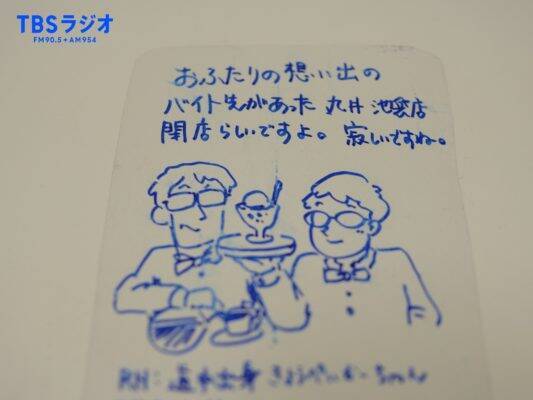 TBSラジオ
FM90.5+AM954
おふたりの想い出の
バイト先があった 丸井 池袋店
閉店らしいですよ。 寂しいですね。
RN: